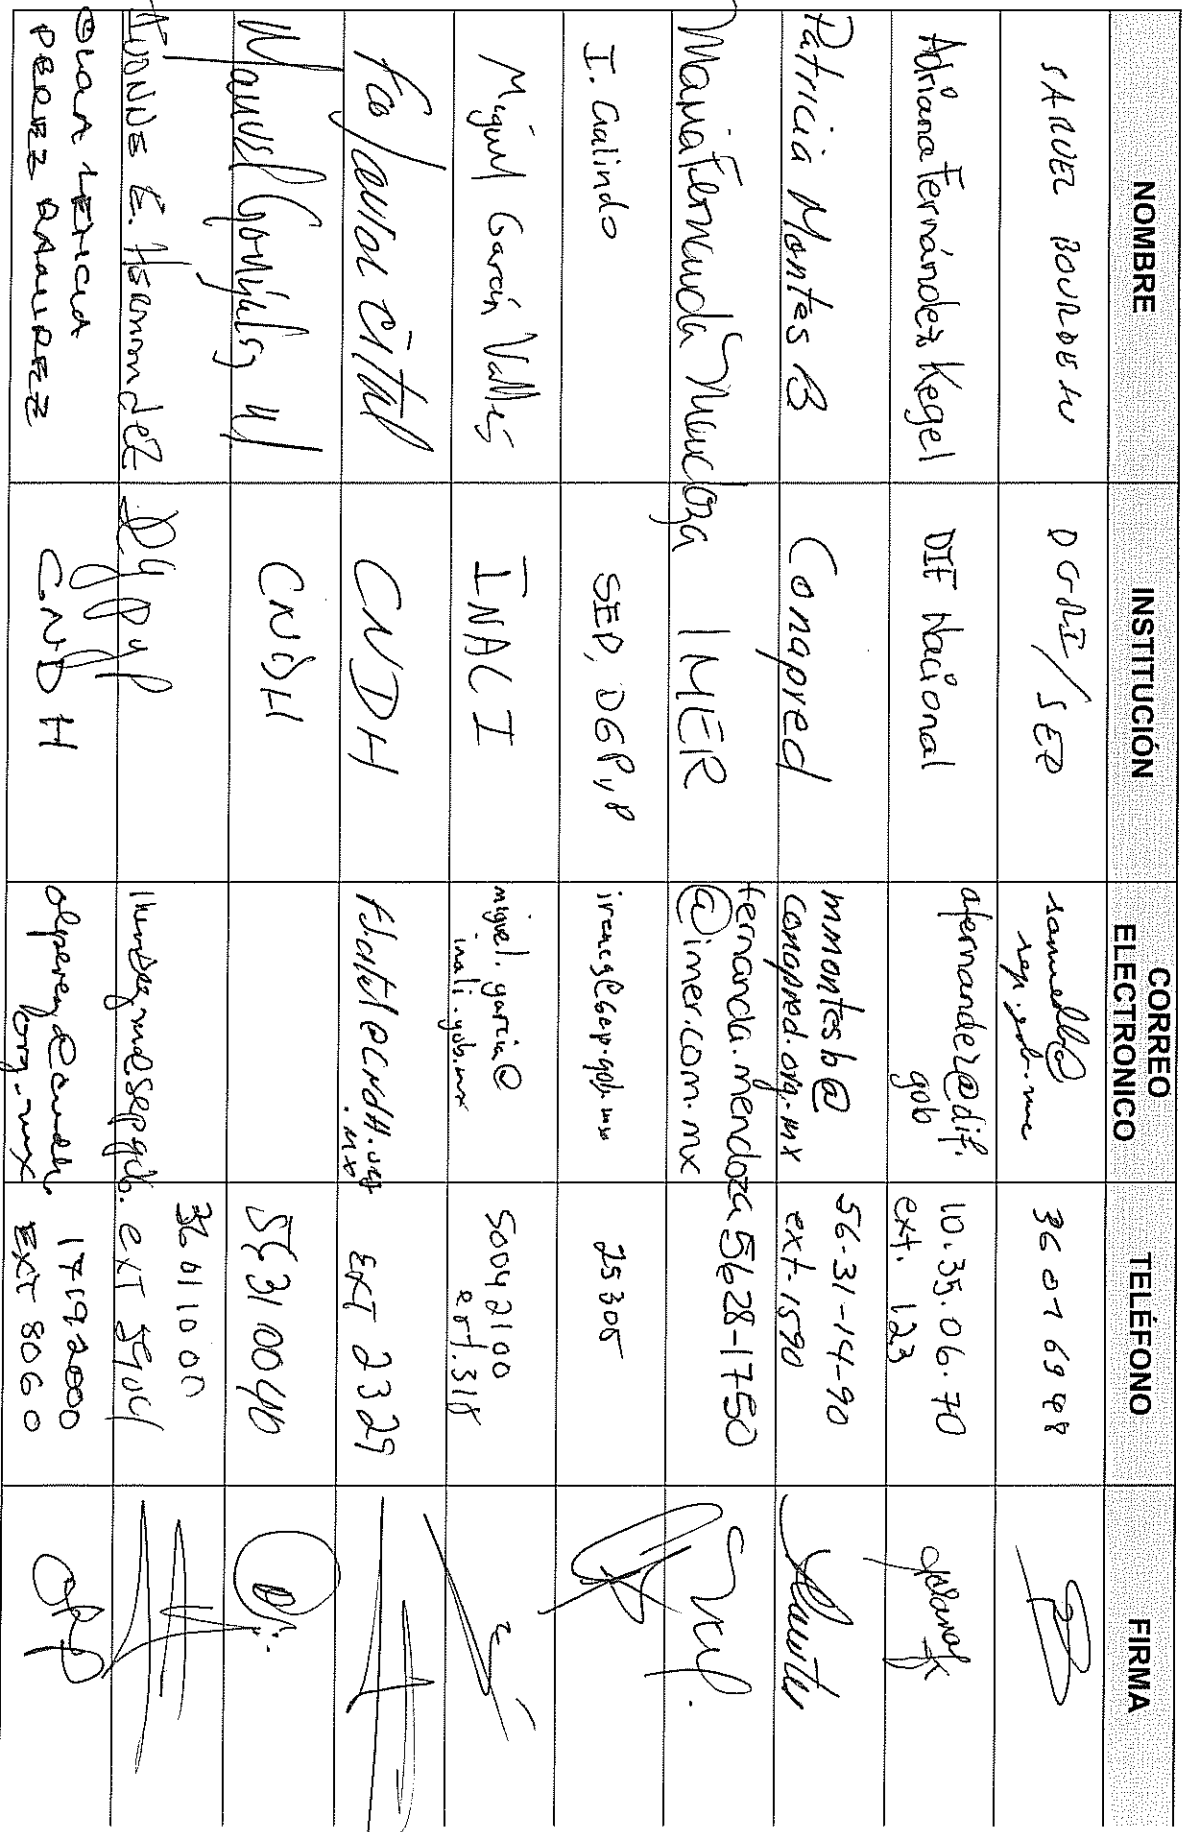 NOMBRE INSTITUCIÓN CORREO ELECTRONICO TELÉFONO FIRMA
SAMUEL BOURDEAU DGRI/SEP samuelb@ sep.gob.mx 36016998
Adriana Fernández Kegel DIF Nacional afernandez@dif. gob 10.35.06.70 ext. 123
Patricia Montes B Conapred mmontesb@ conapred.org.mx 56-31-14-90 ext-1590
Maria Fernanda Mendoza IMER fernanda.mendoza @imer.com.mx 5628-1750
I. Galindo SEP, DGPyP ireneg@sep.gob.mx 25305
Miguel García Valles INALI miguel.garcia@ inali.gob.mx 50042100 ext.318
Fco Javier CNDH EXT 2329
Manuel González CNDH 56310040
IVONNE E. Hernandez DGPyP 36011000 ext
PEREZ RAMIREZ CNDH olperez@cndh. org.mx 17192000 EXT 8060